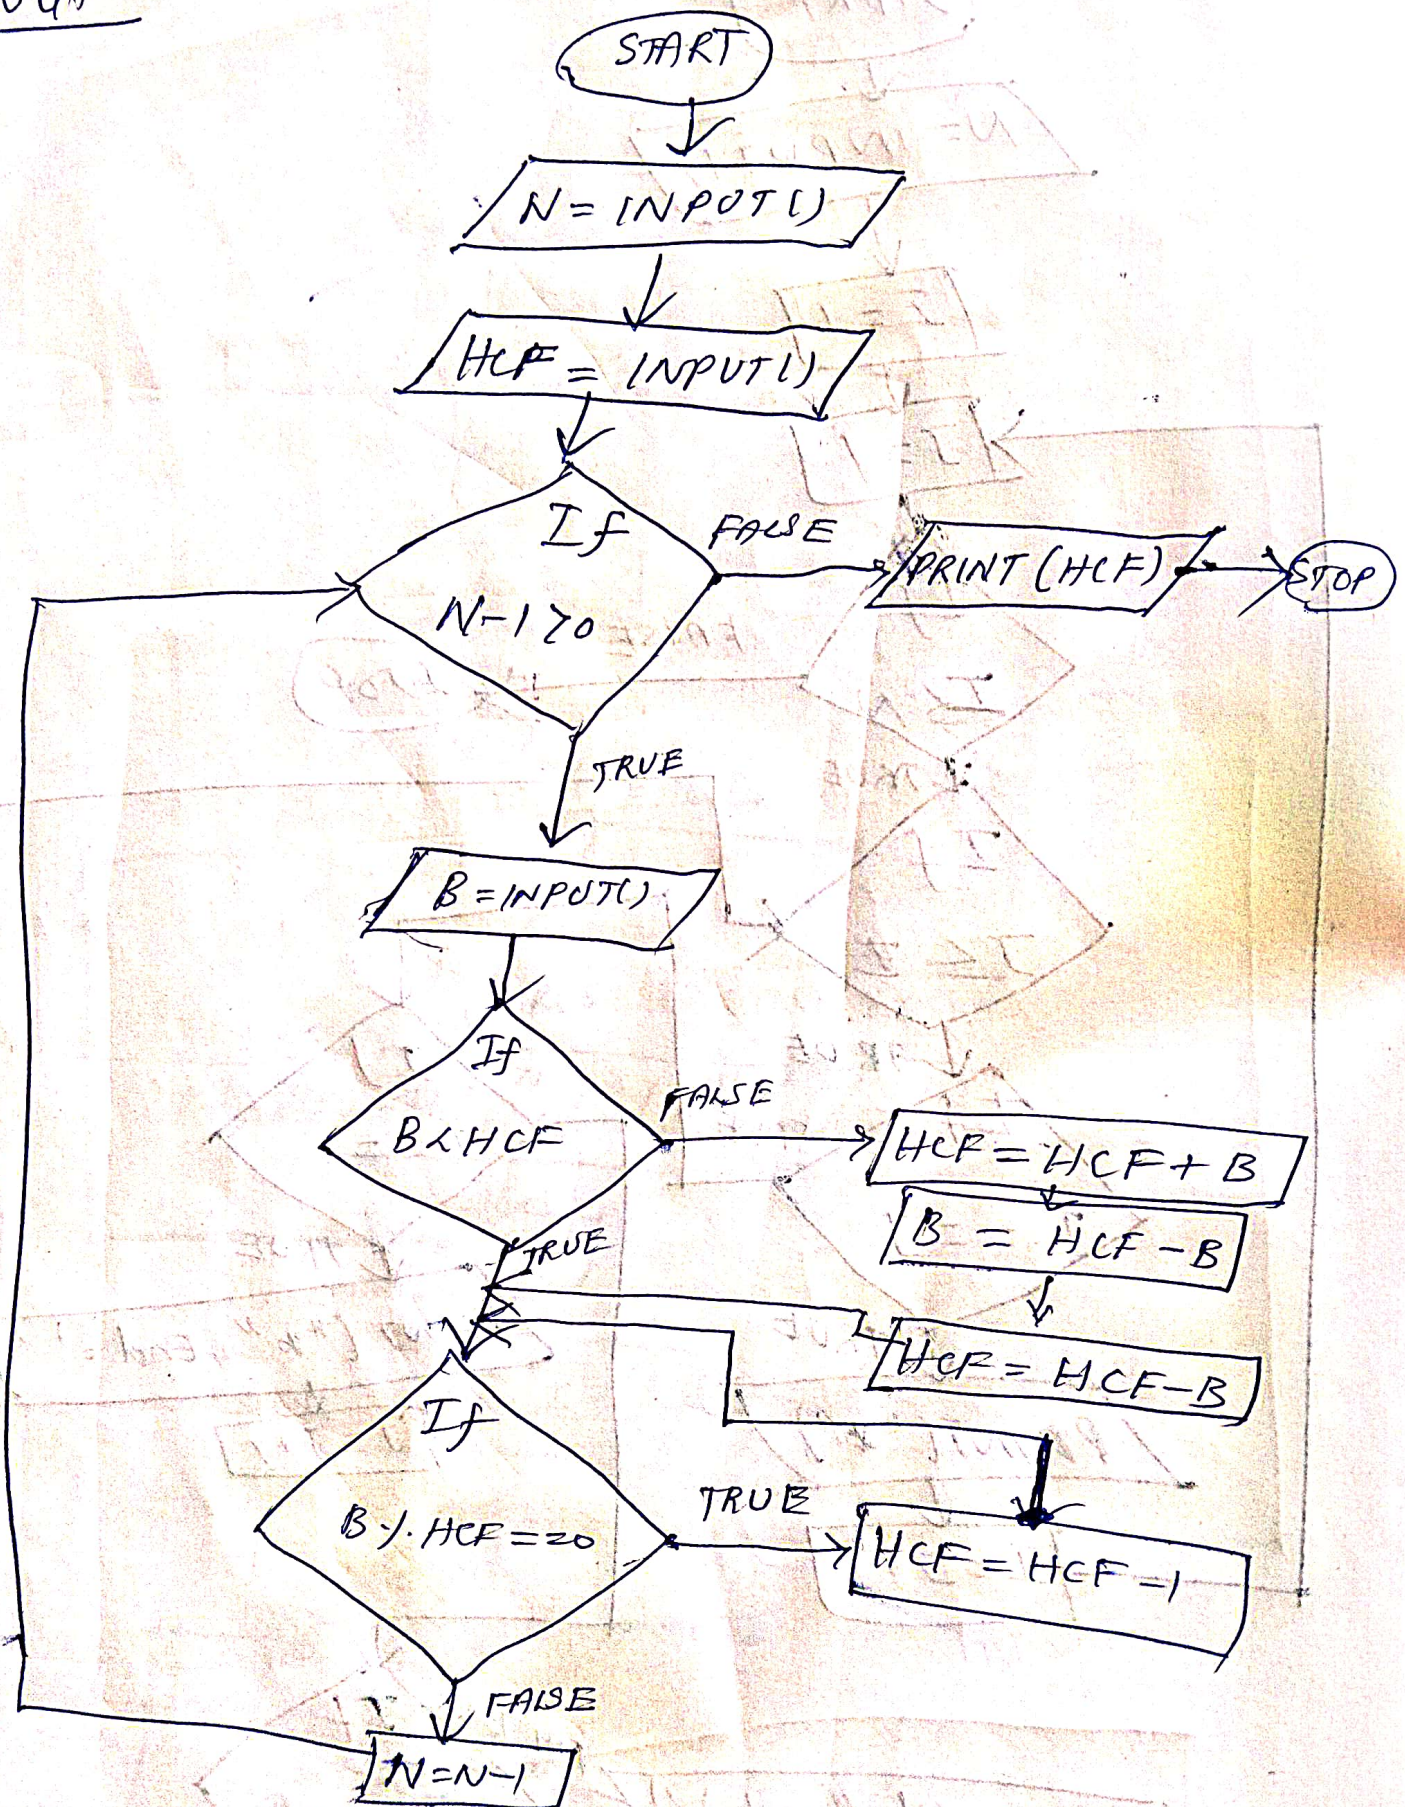 START
N = INPUT()
HCF = INPUT()
If
N-1>0
FALSE
PRINT (HCF)
STOP
TRUE
B = INPUT()
If
B<HCF
FALSE
HCF = HCF + B
B = HCF - B
HCF = HCF - B
TRUE
If
B % HCF = 20
TRUE
HCF = HCF - 1
FALSE
N = N-1